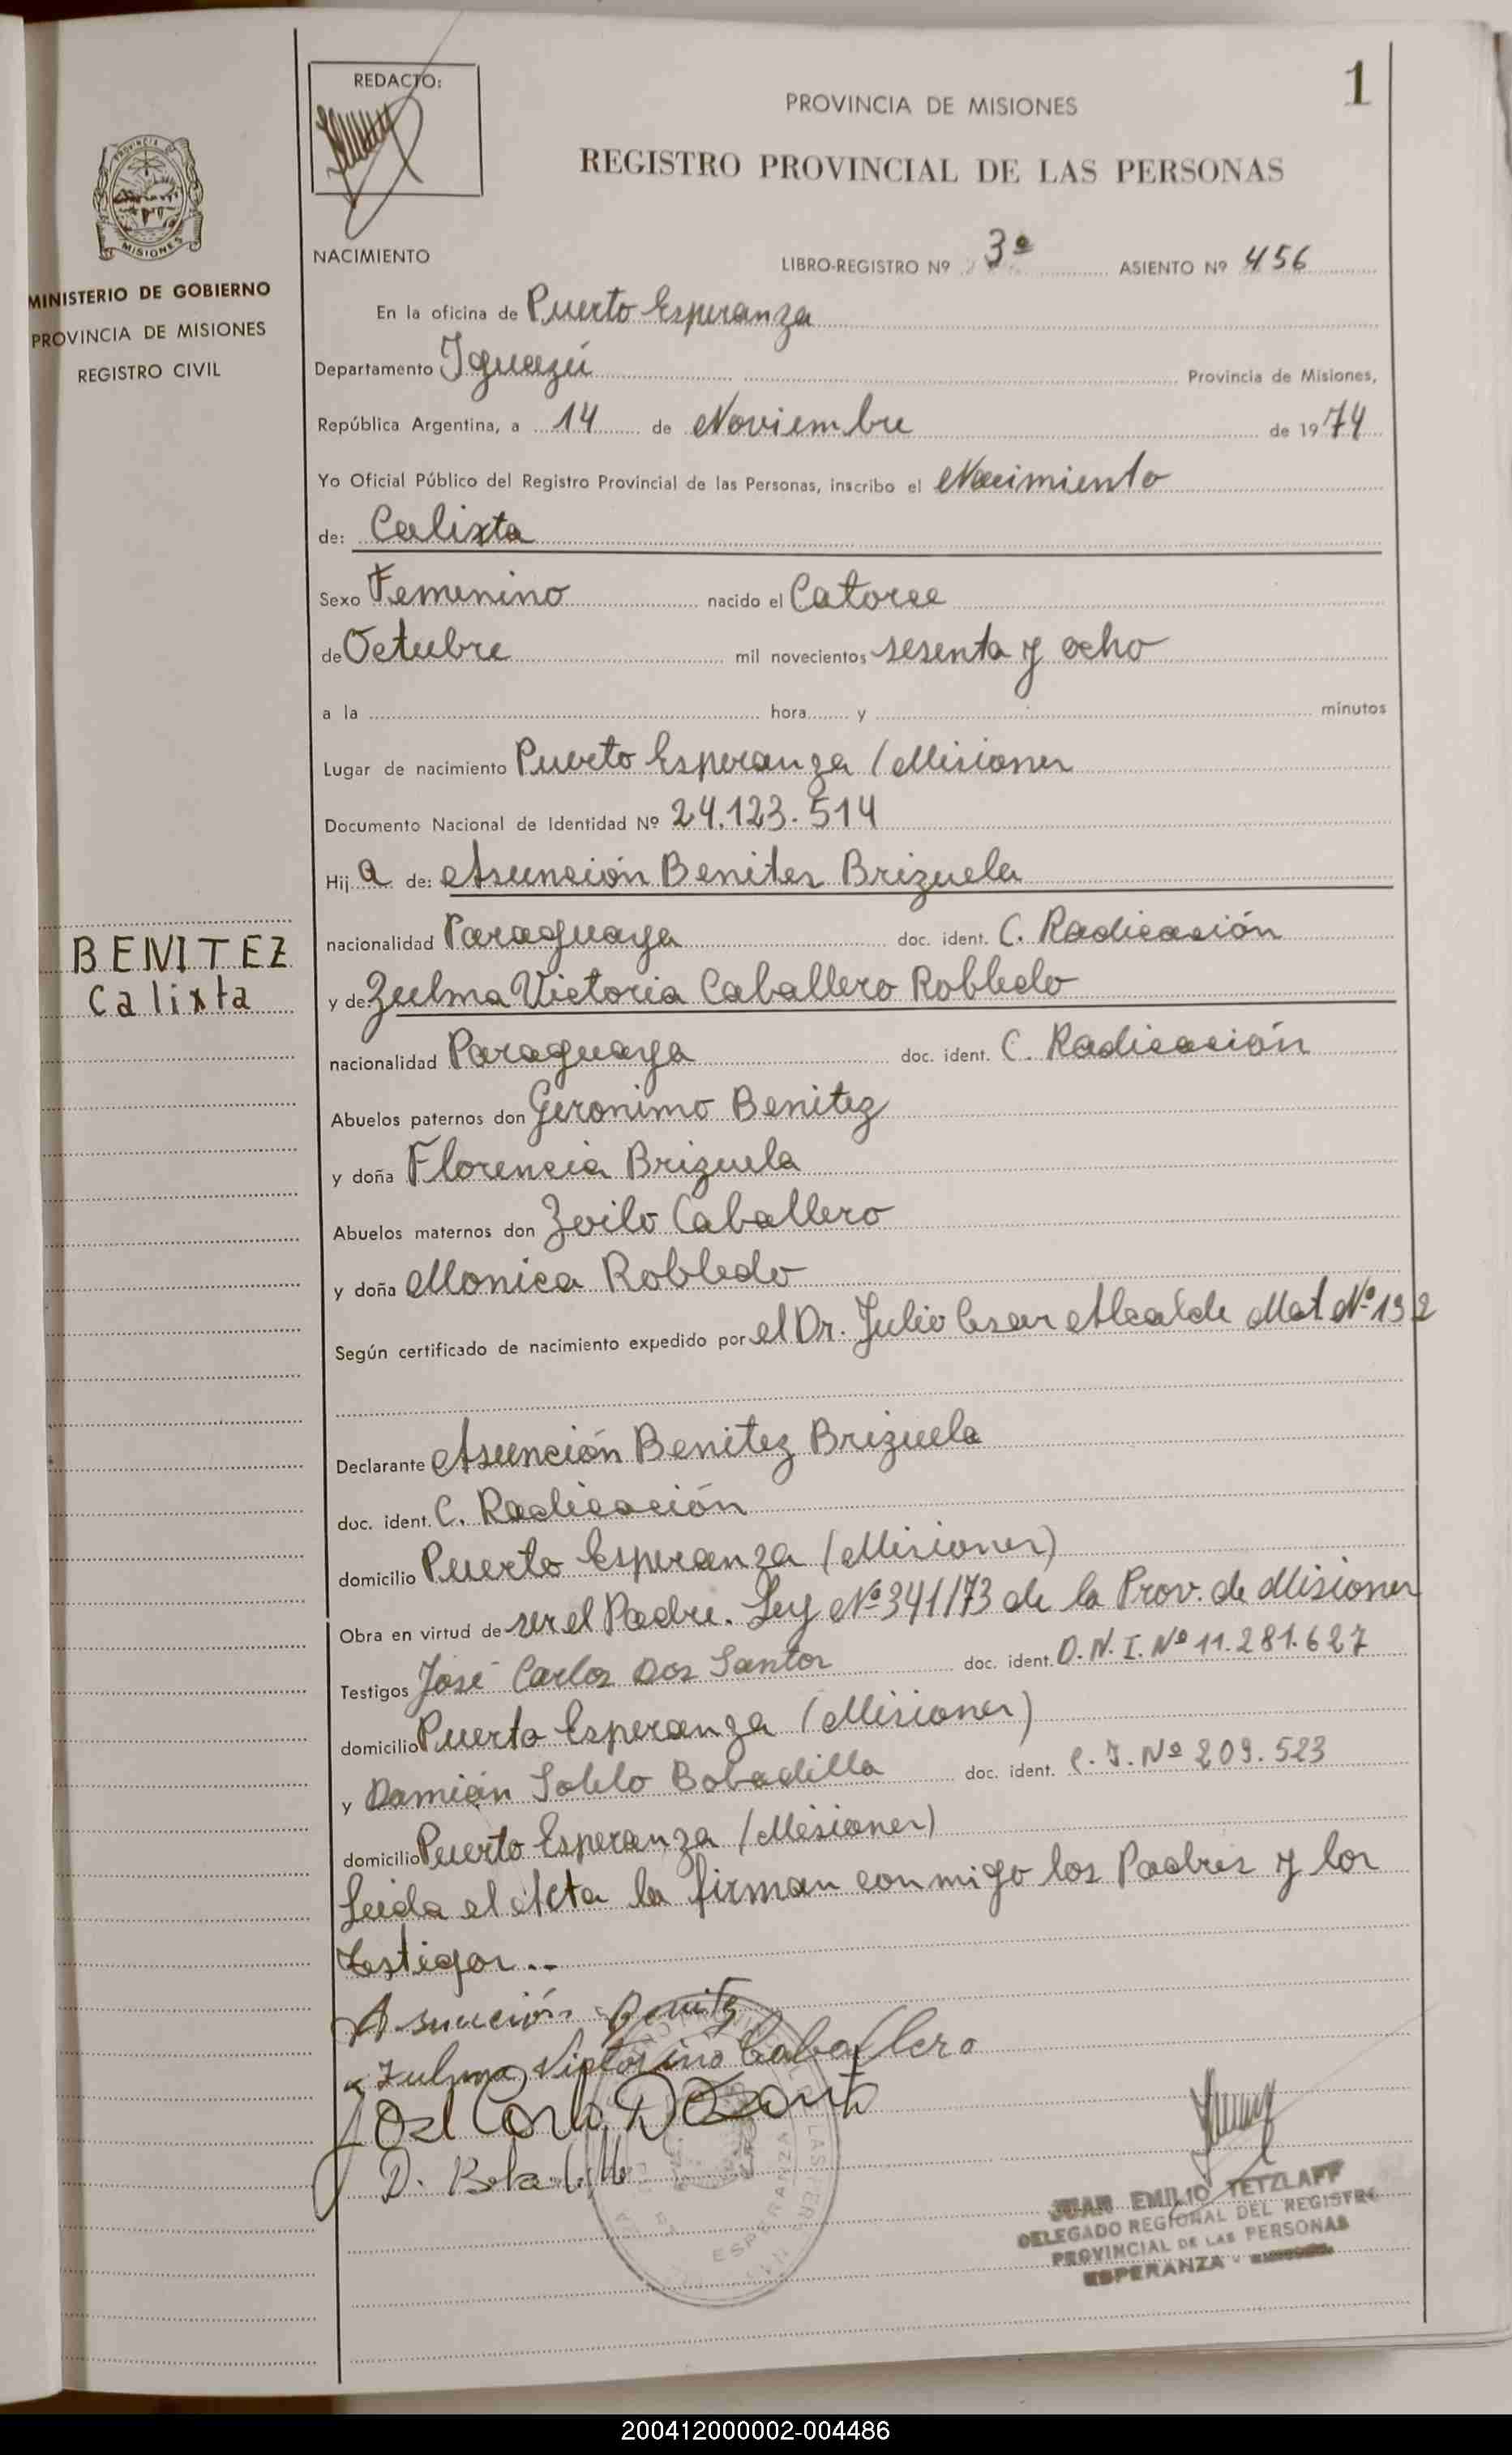 REDACTO:
1
PROVINCIA DE MISIONES
REGISTRO PROVINCIAL DE LAS PERSONAS
PROVINCIA
MISIONES
MINISTERIO DE GOBIERNO
PROVINCIA DE MISIONES
REGISTRO CIVIL
NACIMIENTO
LIBRO-REGISTRO Nº 3º ASIENTO Nº 456
En la oficina de Puerto Esperanza
Departamento Iguazú Provincia de Misiones,
República Argentina, a 14 de Noviembre de 1974
Yo Oficial Público del Registro Provincial de las Personas, inscribo el Nacimiento
de: Calixta
Sexo Femenino nacido el Catorce
de Octubre mil novecientos sesenta y ocho
a la hora y minutos
Lugar de nacimiento Puerto Esperanza (Misiones
Documento Nacional de Identidad Nº 24.123.514
Hij a de: Asunción Benites Brizuela
BENITEZ
Calixta
nacionalidad Paraguaya doc. ident. C. Radicación
y de: Zulma Victoria Caballero Robledo
nacionalidad Paraguaya doc. ident. C. Radicación
Abuelos paternos don Geronimo Benitez
y doña Florencia Brizuela
Abuelos maternos don Zoilo Caballero
y doña Monica Robledo
Según certificado de nacimiento expedido por el Dr. Julio Cesar Alcalde Mat Nº 132
Declarante Asunción Benitez Brizuela
doc. ident. C. Radicación
domicilio Puerto Esperanza (Misiones)
Obra en virtud de ser el Padre. Ley Nº 341/73 de la Prov. de Misiones
Testigos José Carlos Dos Santos doc. ident. D.N.I. Nº 11.281.627
domicilio Puerto Esperanza (Misiones)
y Damián Bobadilla doc. ident. C.I. Nº 209.523
domicilio Puerto Esperanza (Misiones)
Leida el Acta la firman conmigo los Padres y los
Testigos..
Asunción Benitz
Zulma Victorino Caballero
José Carlo Dosanto
D. Bobadilla
ESPERANZA
JUAN EMILIO TETZLAFF
DELEGADO REGIONAL DEL REGISTRO
PROVINCIAL DE LAS PERSONAS
ESPERANZA
200412000002-004486